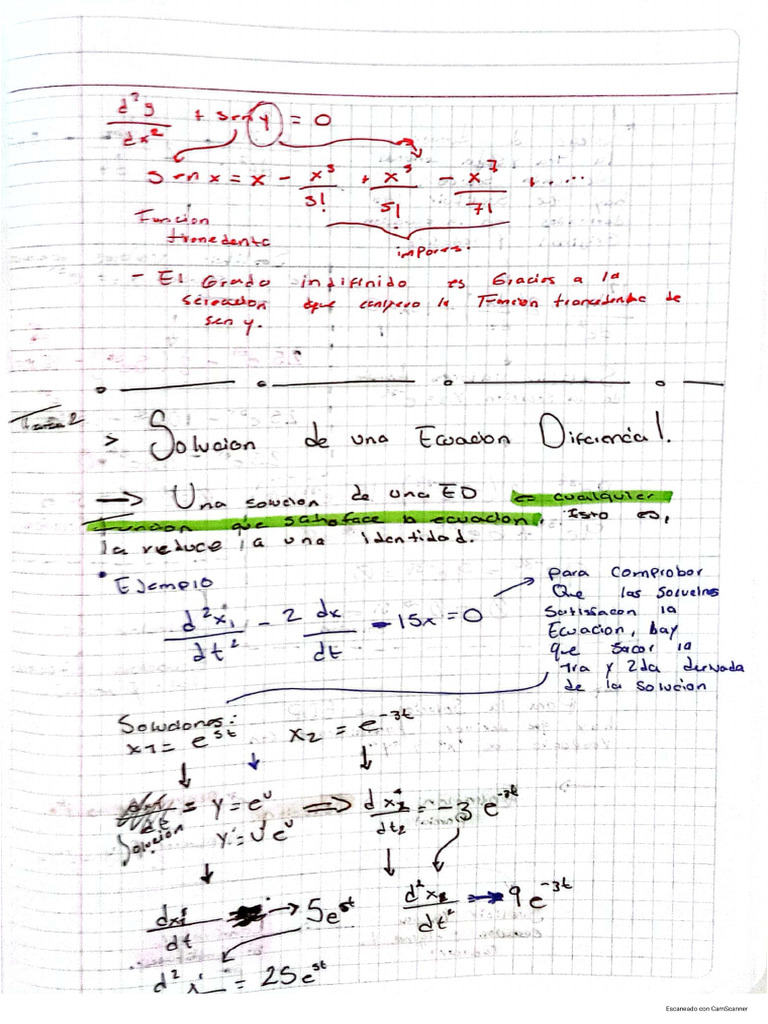 d²y/dx² + sen y = 0
Sen x = x - x³/3! + x⁵/5! - x⁷/7! + ....
Funcion
trocedente
impares.
- El Grado indifinido es Gracias a la
que la Funcion trocedente de
sen y.
Tarea 2
> Solucion de una Ecuacion Diferencial.
⇒ Una solucion de una ED es cualquier
funcion que satisface la ecuacion. Esto es,
la reduce a una Identidad.
• Ejemplo
d²x/dt² - 2 dx/dt - 15x = 0
para comprobar
Que las
Satisfacen la
Ecuacion, hay
que Sacar la
1ra y 2da derivada
de la solucion
Soluciones:
x1 = e^5t x2 = e^-3t
= y = e^u ⇒ dx2/dt2 = -3 e^-3t
Solucion y' = u' e^u
dx/dt → 5e^5t d²x2/dt² → 9e^-3t
d²x = 25e^5t
Escaneado con CamScanner